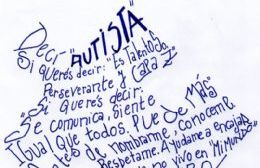 Decí "AUTISTA"
Si querés decir: "Es Talentoso,
Perseverante y Capaz"
"Si querés decir:
Se comunica, siente
Igual que todos. PUEDE MÁS"
de nombrarme, conoceme
Respetame. Ayudame a encajar
vivo en "Mi MUNDO"